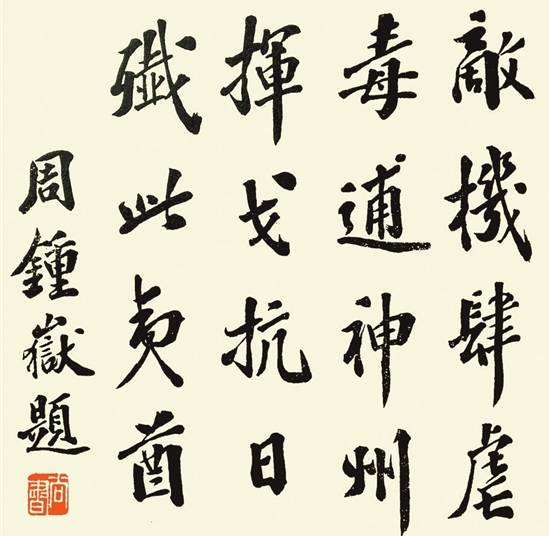 敵機肆虐
毒逋神州
揮戈抗日
殲此夷酋
周鍾嶽題
尚書